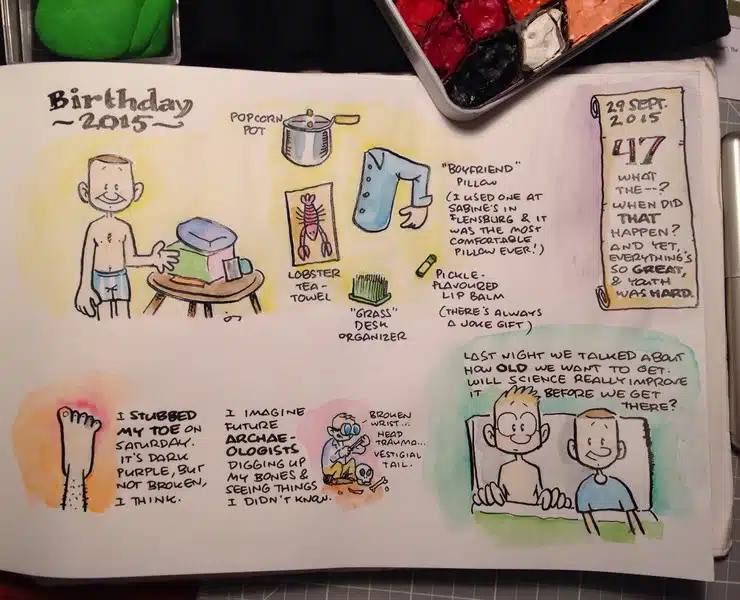 Birthday
~2015~
POPCORN
POT
"BOYFRIEND"
PILLOW
(I USED ONE AT
SABINE'S IN
FLENSBURG & IT
WAS THE MOST
COMFORTABLE
PILLOW EVER!)
LOBSTER
TEA-
TOWEL
"GRASS"
DESK
ORGANIZER
PICKLE-
FLAVOURED
LIP BALM
(THERE'S ALWAYS
A JOKE GIFT)
29 SEPT.
2015
47
WHAT
THE--?
WHEN DID
THAT
HAPPEN?
AND YET,
EVERYTHING'S
SO GREAT,
& YOUTH
WAS HARD.
I STUBBED
MY TOE ON
SATURDAY.
IT'S DARK
PURPLE, BUT
NOT BROKEN,
I THINK.
I IMAGINE
FUTURE
ARCHAE-
OLOGISTS
DIGGING UP
MY BONES &
SEEING THINGS
I DIDN'T KNOW.
BROKEN
WRIST...
HEAD
TRAUMA...
VESTIGIAL
TAIL.
LAST NIGHT WE TALKED ABOUT
HOW OLD WE WANT TO GET.
WILL SCIENCE REALLY IMPROVE
IT BEFORE WE GET
THERE?